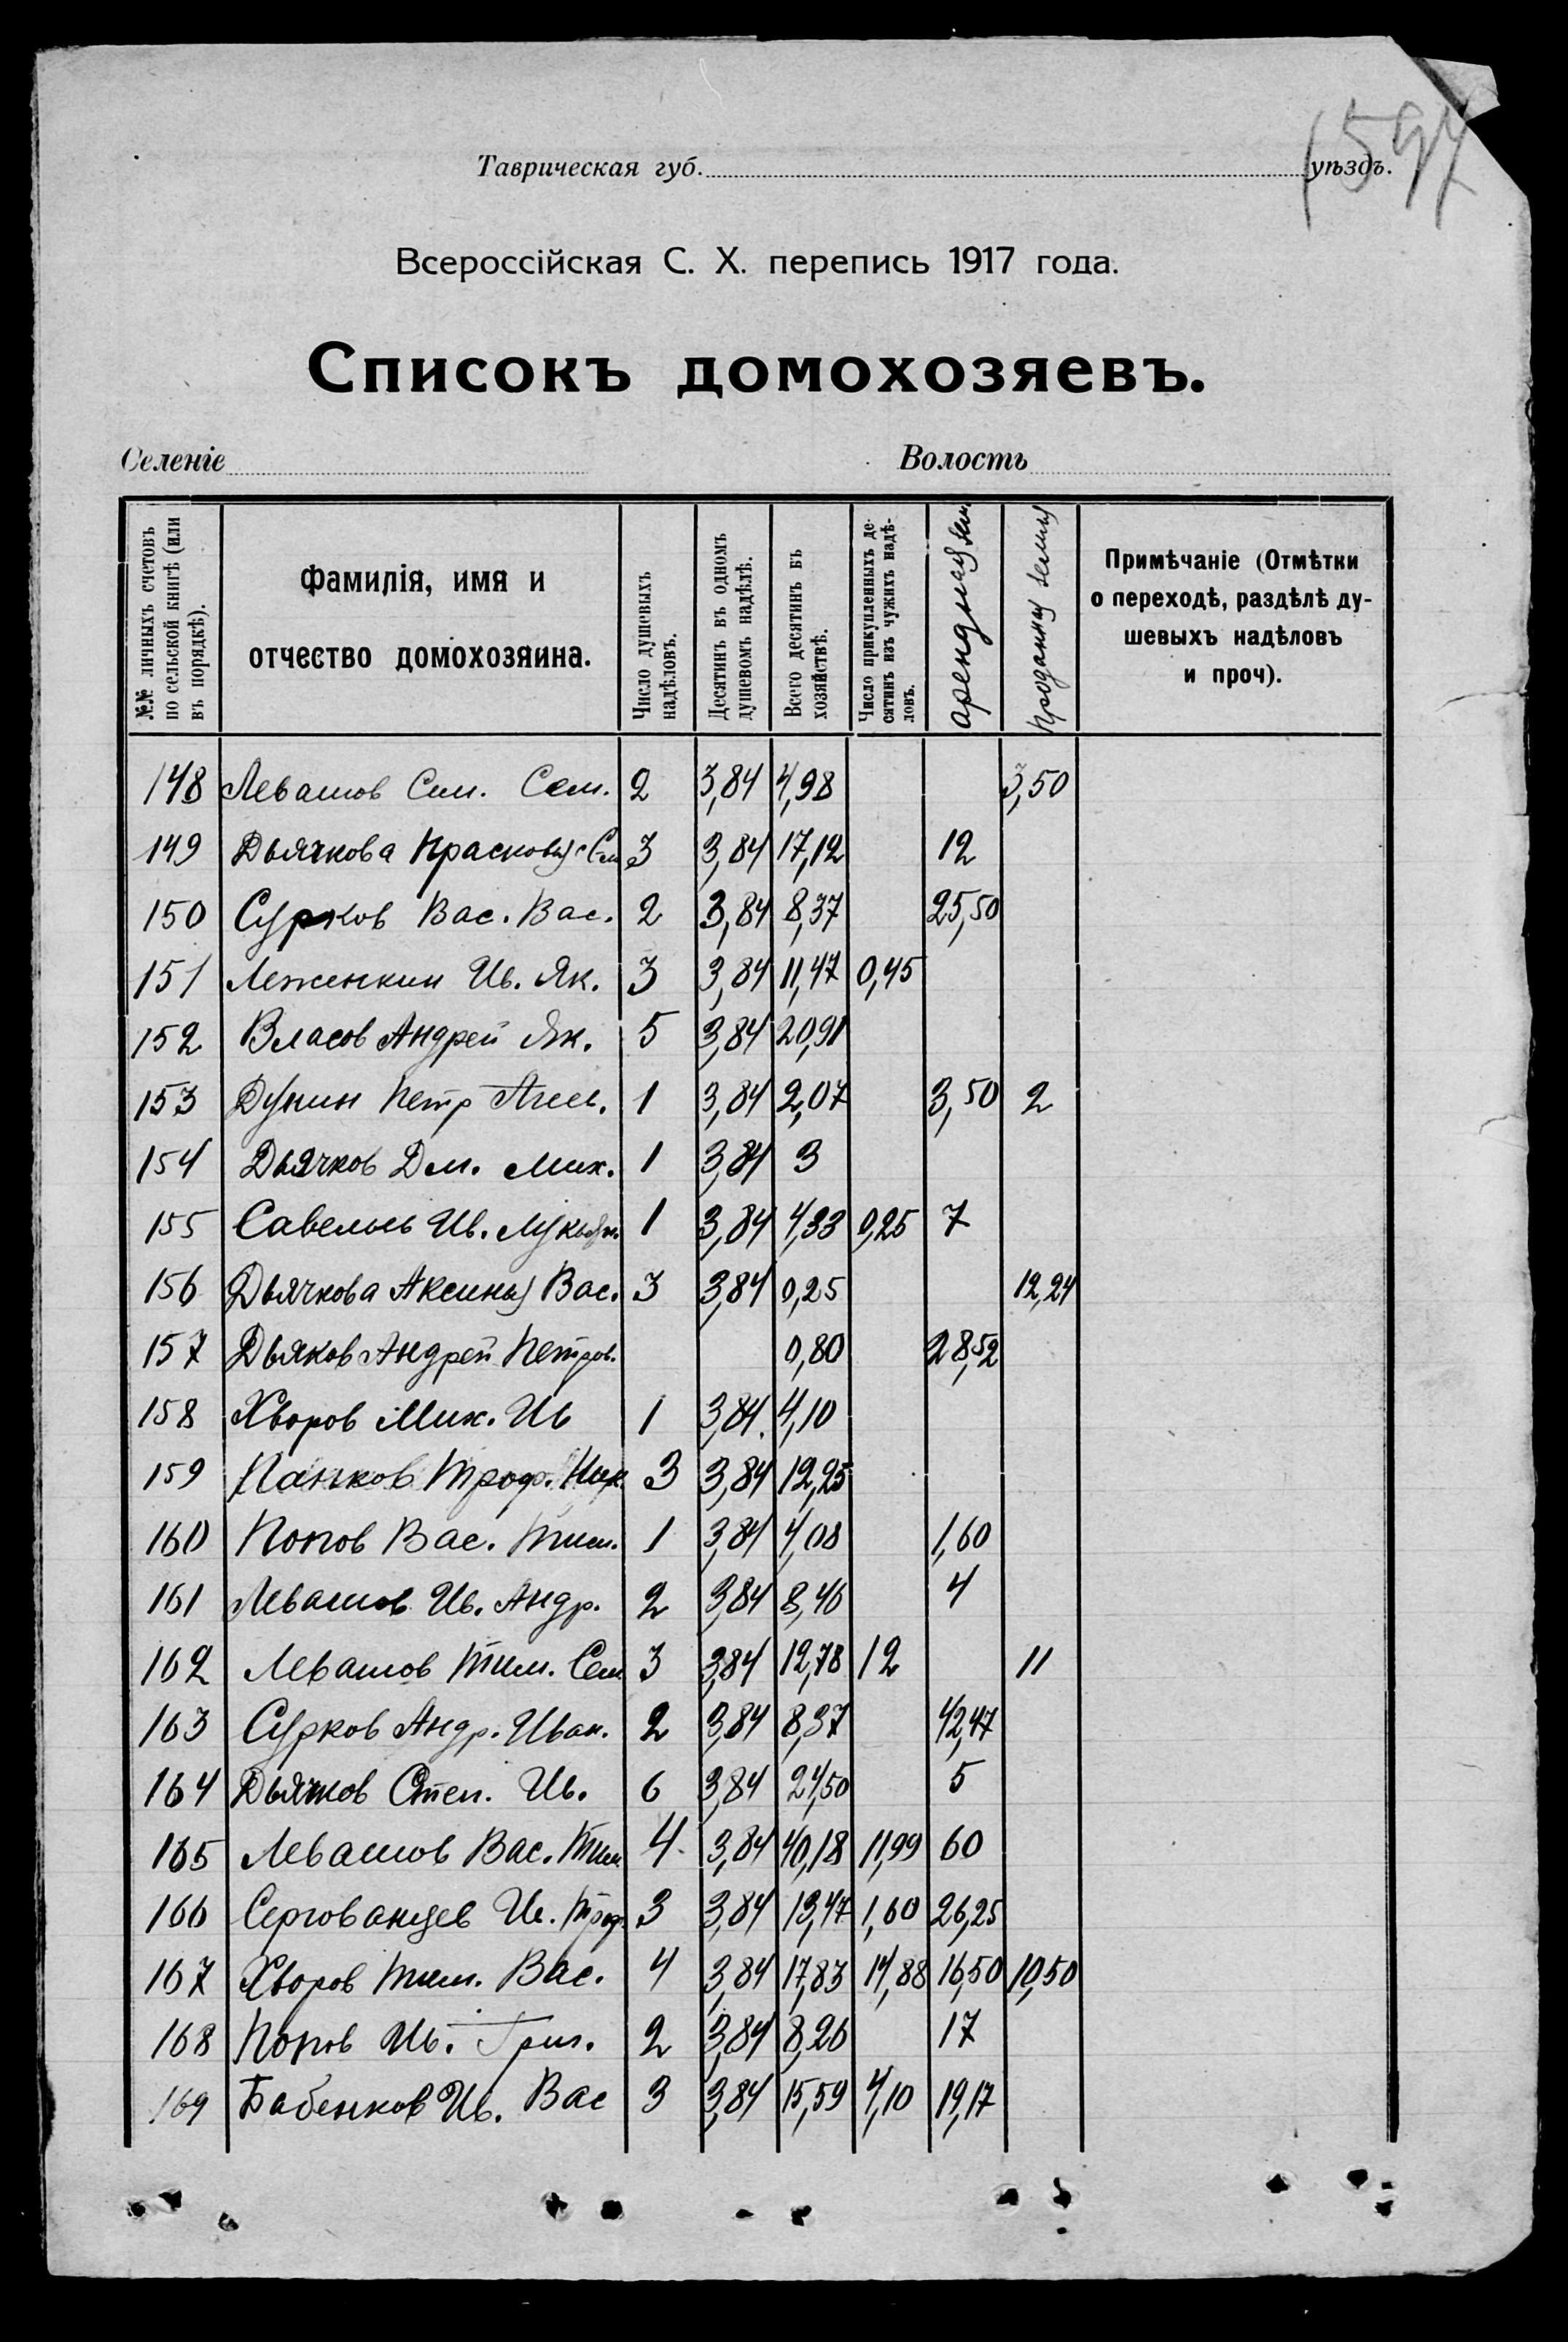 597
Таврическая губ. уѣздъ.
Всероссійская С. Х. перепись 1917 года.
Списокъ домохозяевъ.
Селеніе Волость
№№ личныхъ счетовъ по сельской книгѣ (или въ порядкѣ).
Фамилія, имя и отчество домохозяина.
Число душевыхъ надѣловъ.
Десятинъ въ одномъ душевомъ надѣлѣ.
Всего десятинъ въ хозяйствѣ.
Число прикупленныхъ десятинъ изъ чужихъ надѣловъ.
Проданная земля
Примѣчаніе (Отмѣтки
о переходѣ, раздѣлѣ ду-
шевыхъ надѣловъ
и проч).
148 Левашов Сем. Сем. 2 3,84 4,98 3,50
149 Дьячкова Прасковья Сем 3 3,84 17,12 12
150 Сурков Вас. Вас. 2 3,84 8,37 25,50
151 Леженкин Ив. Як. 3 3,84 11,47 0,45
152 Власов Андрей Як. 5 3,84 20,91
153 Дунин Петр 1 3,84 2,07 3,50 2
154 Дьячков Дм. Мих. 1 3,84 3
155 Савельев Ив. Лукьян. 1 3,84 4,33 0,25 7
156 Дьячкова Аксинья Вас. 3 3,84 0,25 12,24
157 Дьяков Андрей Петров. 0,80 28,52
158 Хворов Мих. Ив 1 3,84 4,10
159 Панков Троф. 3 3,84 12,25
160 Попов Вас. Тим. 1 3,84 4,08 1,60
161 Левашов Ив. Андр. 2 3,84 8,46 4
162 Левашов Тим. Сем 3 3,84 12,78 12 11
163 Сурков Андр. Иван. 2 3,84 8,37 42,47
164 Дьячков Степ. Ив. 6 3,84 24,50 5
165 Левашов Вас. Тим 4 3,84 40,18 11,99 60
166 Сергованцев Ив. Троф. 3 3,84 13,47 1,60 26,25
167 Хворов Тим. Вас. 4 3,84 17,83 14,88 16,50 10,50
168 Попов Ив. Григ. 2 3,84 8,26 17
169 Бабенков Ив. Вас 3 3,84 15,59 4,10 19,17